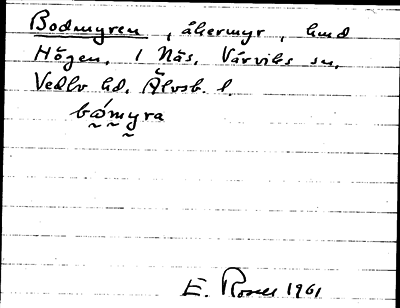 Bodmyren, åkermyr, hmd
Högen, 1 Näs, Vårviks sn,
Vedbo hd. Älvsb. l.
bǿmyra
E. Rosell 1961